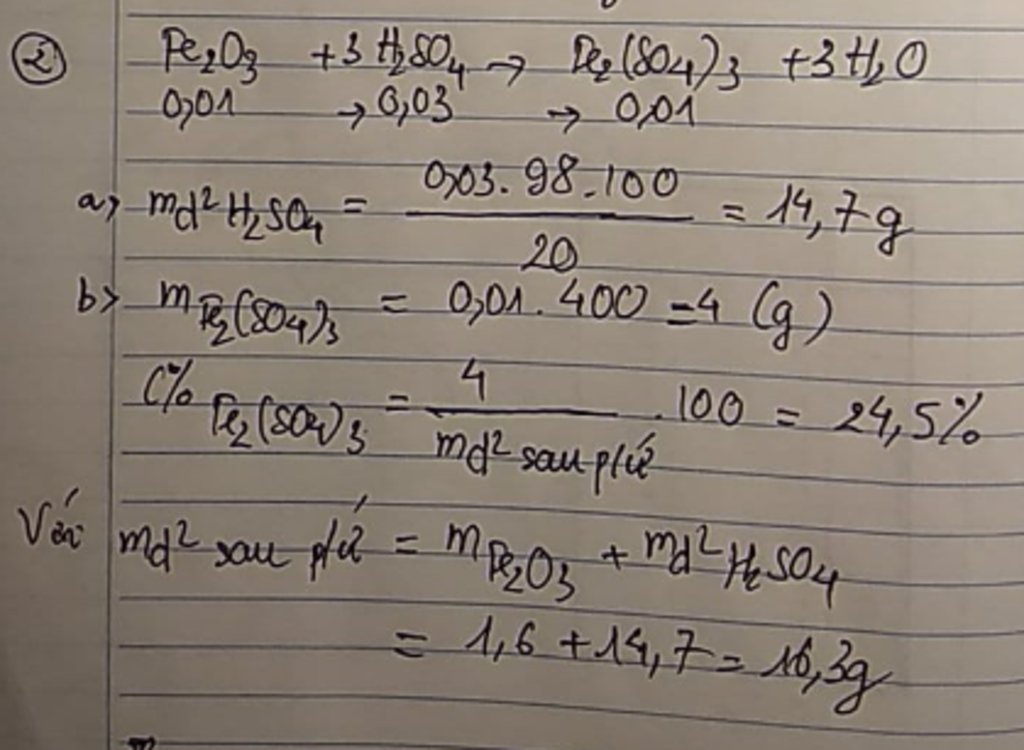 ② Fe₂O₃ + 3H₂SO₄ → Fe₂(SO₄)₃ + 3H₂O
0,01 → 0,03 → 0,01
a, md² H₂SO₄ = 0,03.98.100 / 20 = 14,7g
b> m Fe₂(SO₄)₃ = 0,01.400 = 4 (g)
C% Fe₂(SO₄)₃ = 4 / md² sau p/ứ .100 = 24,5%
Với md² sau p/ứ = m Fe₂O₃ + md² H₂SO₄
= 1,6 + 14,7 = 16,3g